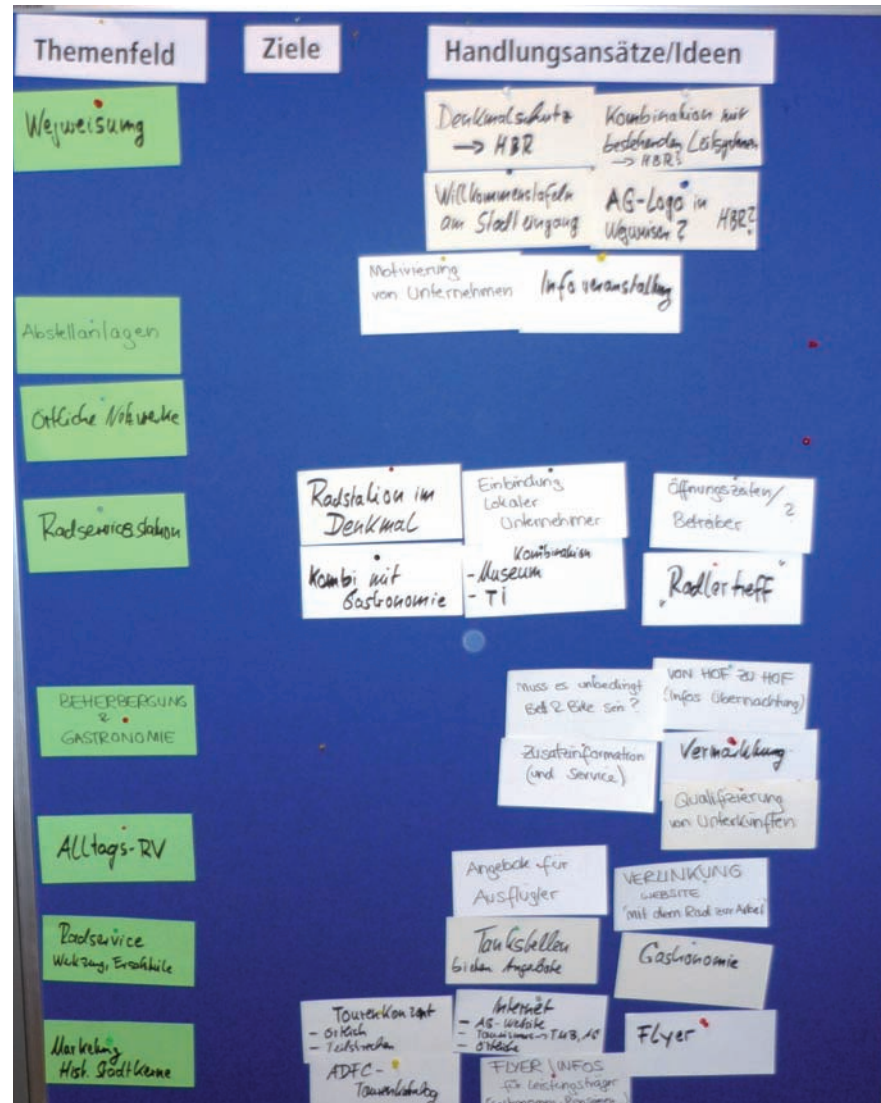 Themenfeld
Ziele
Handlungsansätze/Ideen
Wegweisung
Denkmalschutz
→ HBR
Kombination mit
bestehenden Leitsystemen
→ HBR?
Willkommenstafeln
am Stadteingang
AG-Logo in
Wegweisen? HBR?
Motivierung
von Unternehmen
Infoveranstaltung
Abstellanlagen
Örtliche Netzwerke
Radservicestation
Radstation im
Denkmal
Einbindung
Lokaler
Unternehmer
Öffnungszeiten/
Betreiber ?
Kombi mit
Gastronomie
Kombination
- Museum
- TI
"Radlertreff"
BEHERBERGUNG
&
GASTRONOMIE
Muss es unbedingt
Bett & Bike sein?
VON HOF ZU HOF
(Infos Übernachtung)
Zusatzinformation
(und Service)
Vermarktung
Qualifizierung
von Unterkünften
Alltags-RV
Angebote für
Ausflügler
VERLINKUNG
WEBSITE
"mit dem Rad zur Arbeit"
Radservice
Werkzeug, Ersatzteile
Tankstellen
bieten Angebote
Gastronomie
Marketing
Hist. Stadtkerne
Tourenkonzept
- örtlich
- Teilstrecken
Internet
- AG-Website
- Tourismus → TMB, AG
- örtliche
Flyer
ADFC-
Tourenkatalog
FLYER / INFOS
für Leistungsträger